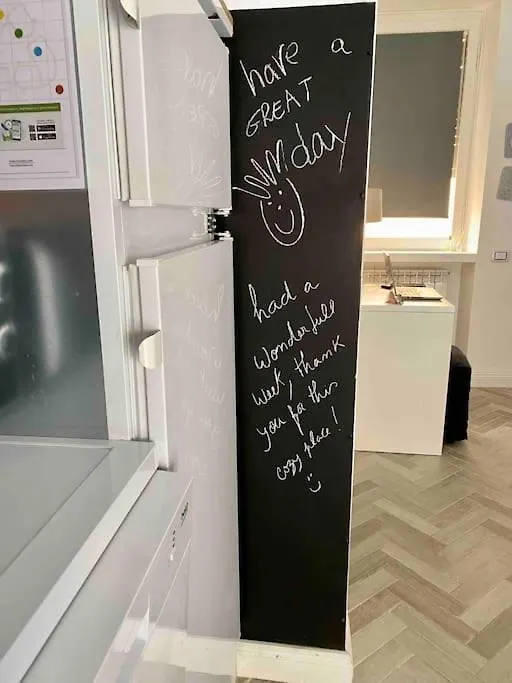 have a
GREAT
day
had a
wonderfull
week, thank
you for this
cozy place!